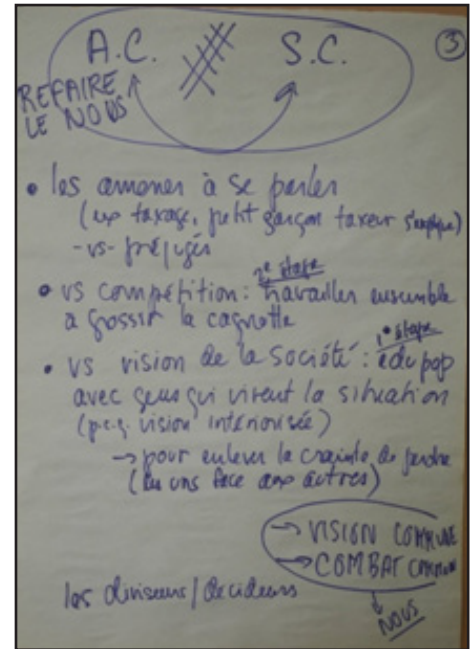 A.C. S.C. ③
REFAIRE
LE NOUS
• les amener à se parler
(ex taxage, petit garçon taxeur s'explique)
-vs- préjugés
2e étape
• vs compétition : travailler ensemble
à grossir la cagnotte
1e étape
• vs vision de la société : édu pop
avec gens qui vivent la situation
(p.c.q. vision intériorisée)
→ pour enlever la crainte de perdre
(les uns face aux autres)
→ VISION COMMUNE
→ COMBAT COMMUN
les diviseurs / décideurs
↓
NOUS